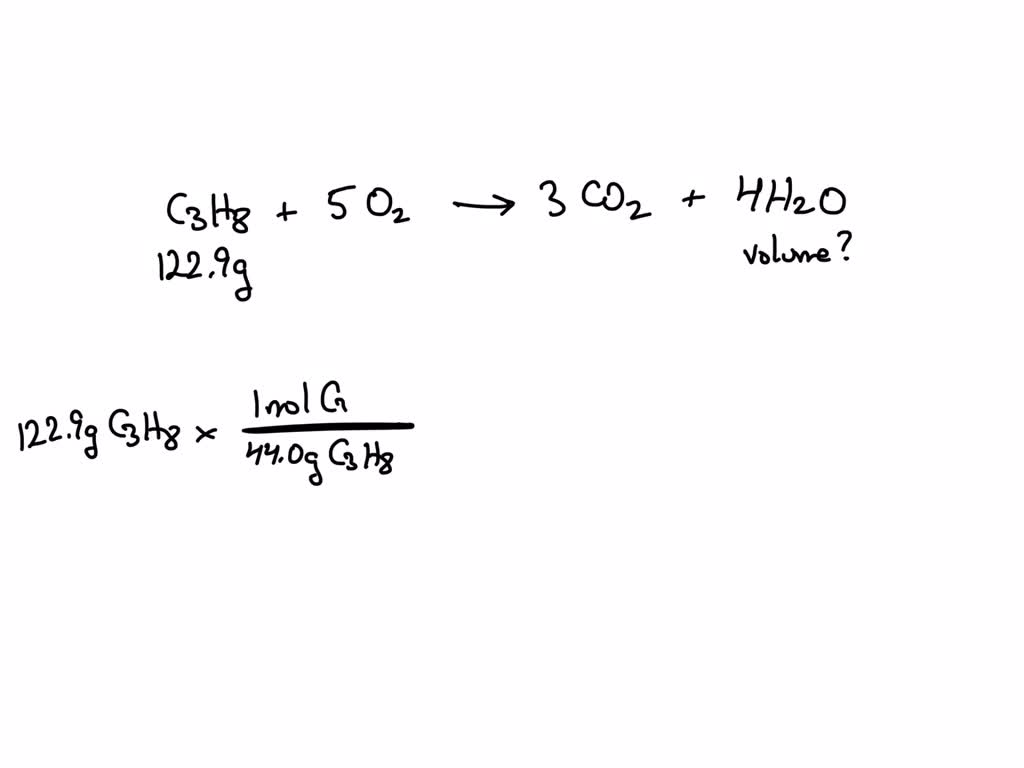 C₃H₈ + 5 O₂ → 3 CO₂ + 4H₂O
122.9g volume?
122.9g C₃H₈ × 1 mol C
44.0g C₃H₈